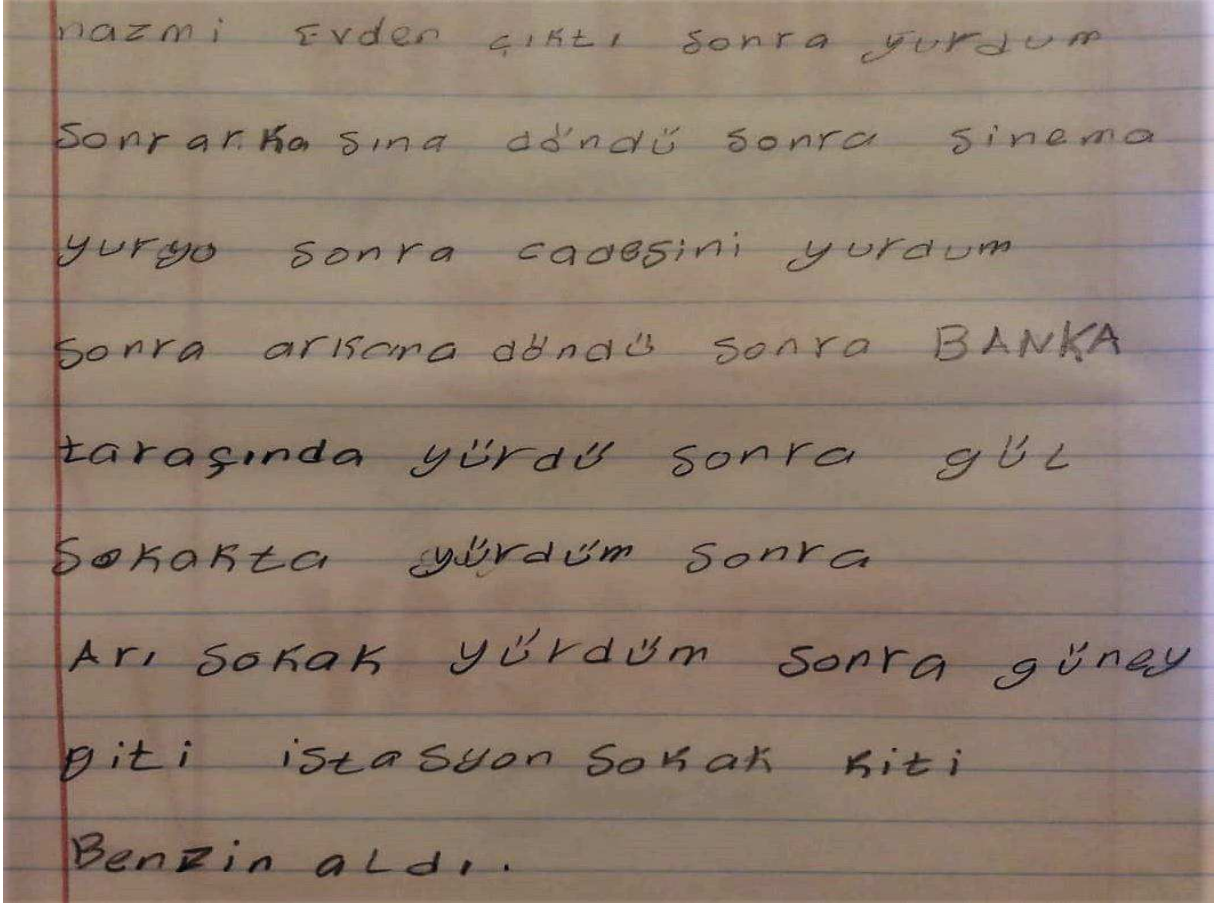 nazmi Evden çıktı sonra yurdum
Sonrarkasına döndü sonra sinema
yuryo sonra cadesini yurdum
Sonra arkama döndü sonra BANKA
taraşında yürdü sonra gül
Sokakta yürdüm sonra
Arı Sokak yürdüm sonra güney
giti istasyon Sokak kiti
Benzin aldı.